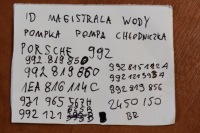 ID MAGISTRALA WODY
POMPKA POMPA CHŁODNICZA
PORSCHE 992
992819850
992819860
1EA816114C
971965567H
992121
992815192A
992121598A
992819856
2450150
BR